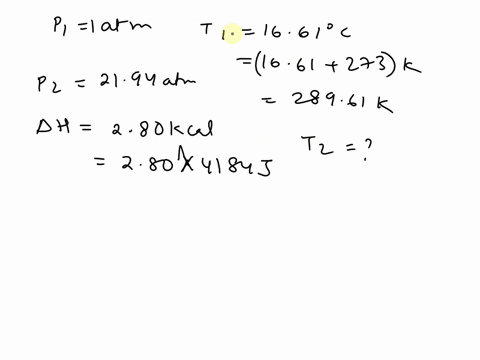 P₁ = 1 atm
T₁ = 16.61°C
= (16.61 + 273) K
= 289.61 K
P₂ = 21.94 atm
ΔH = 2.80 kcal
= 2.80 × 4184 J
T₂ = ?